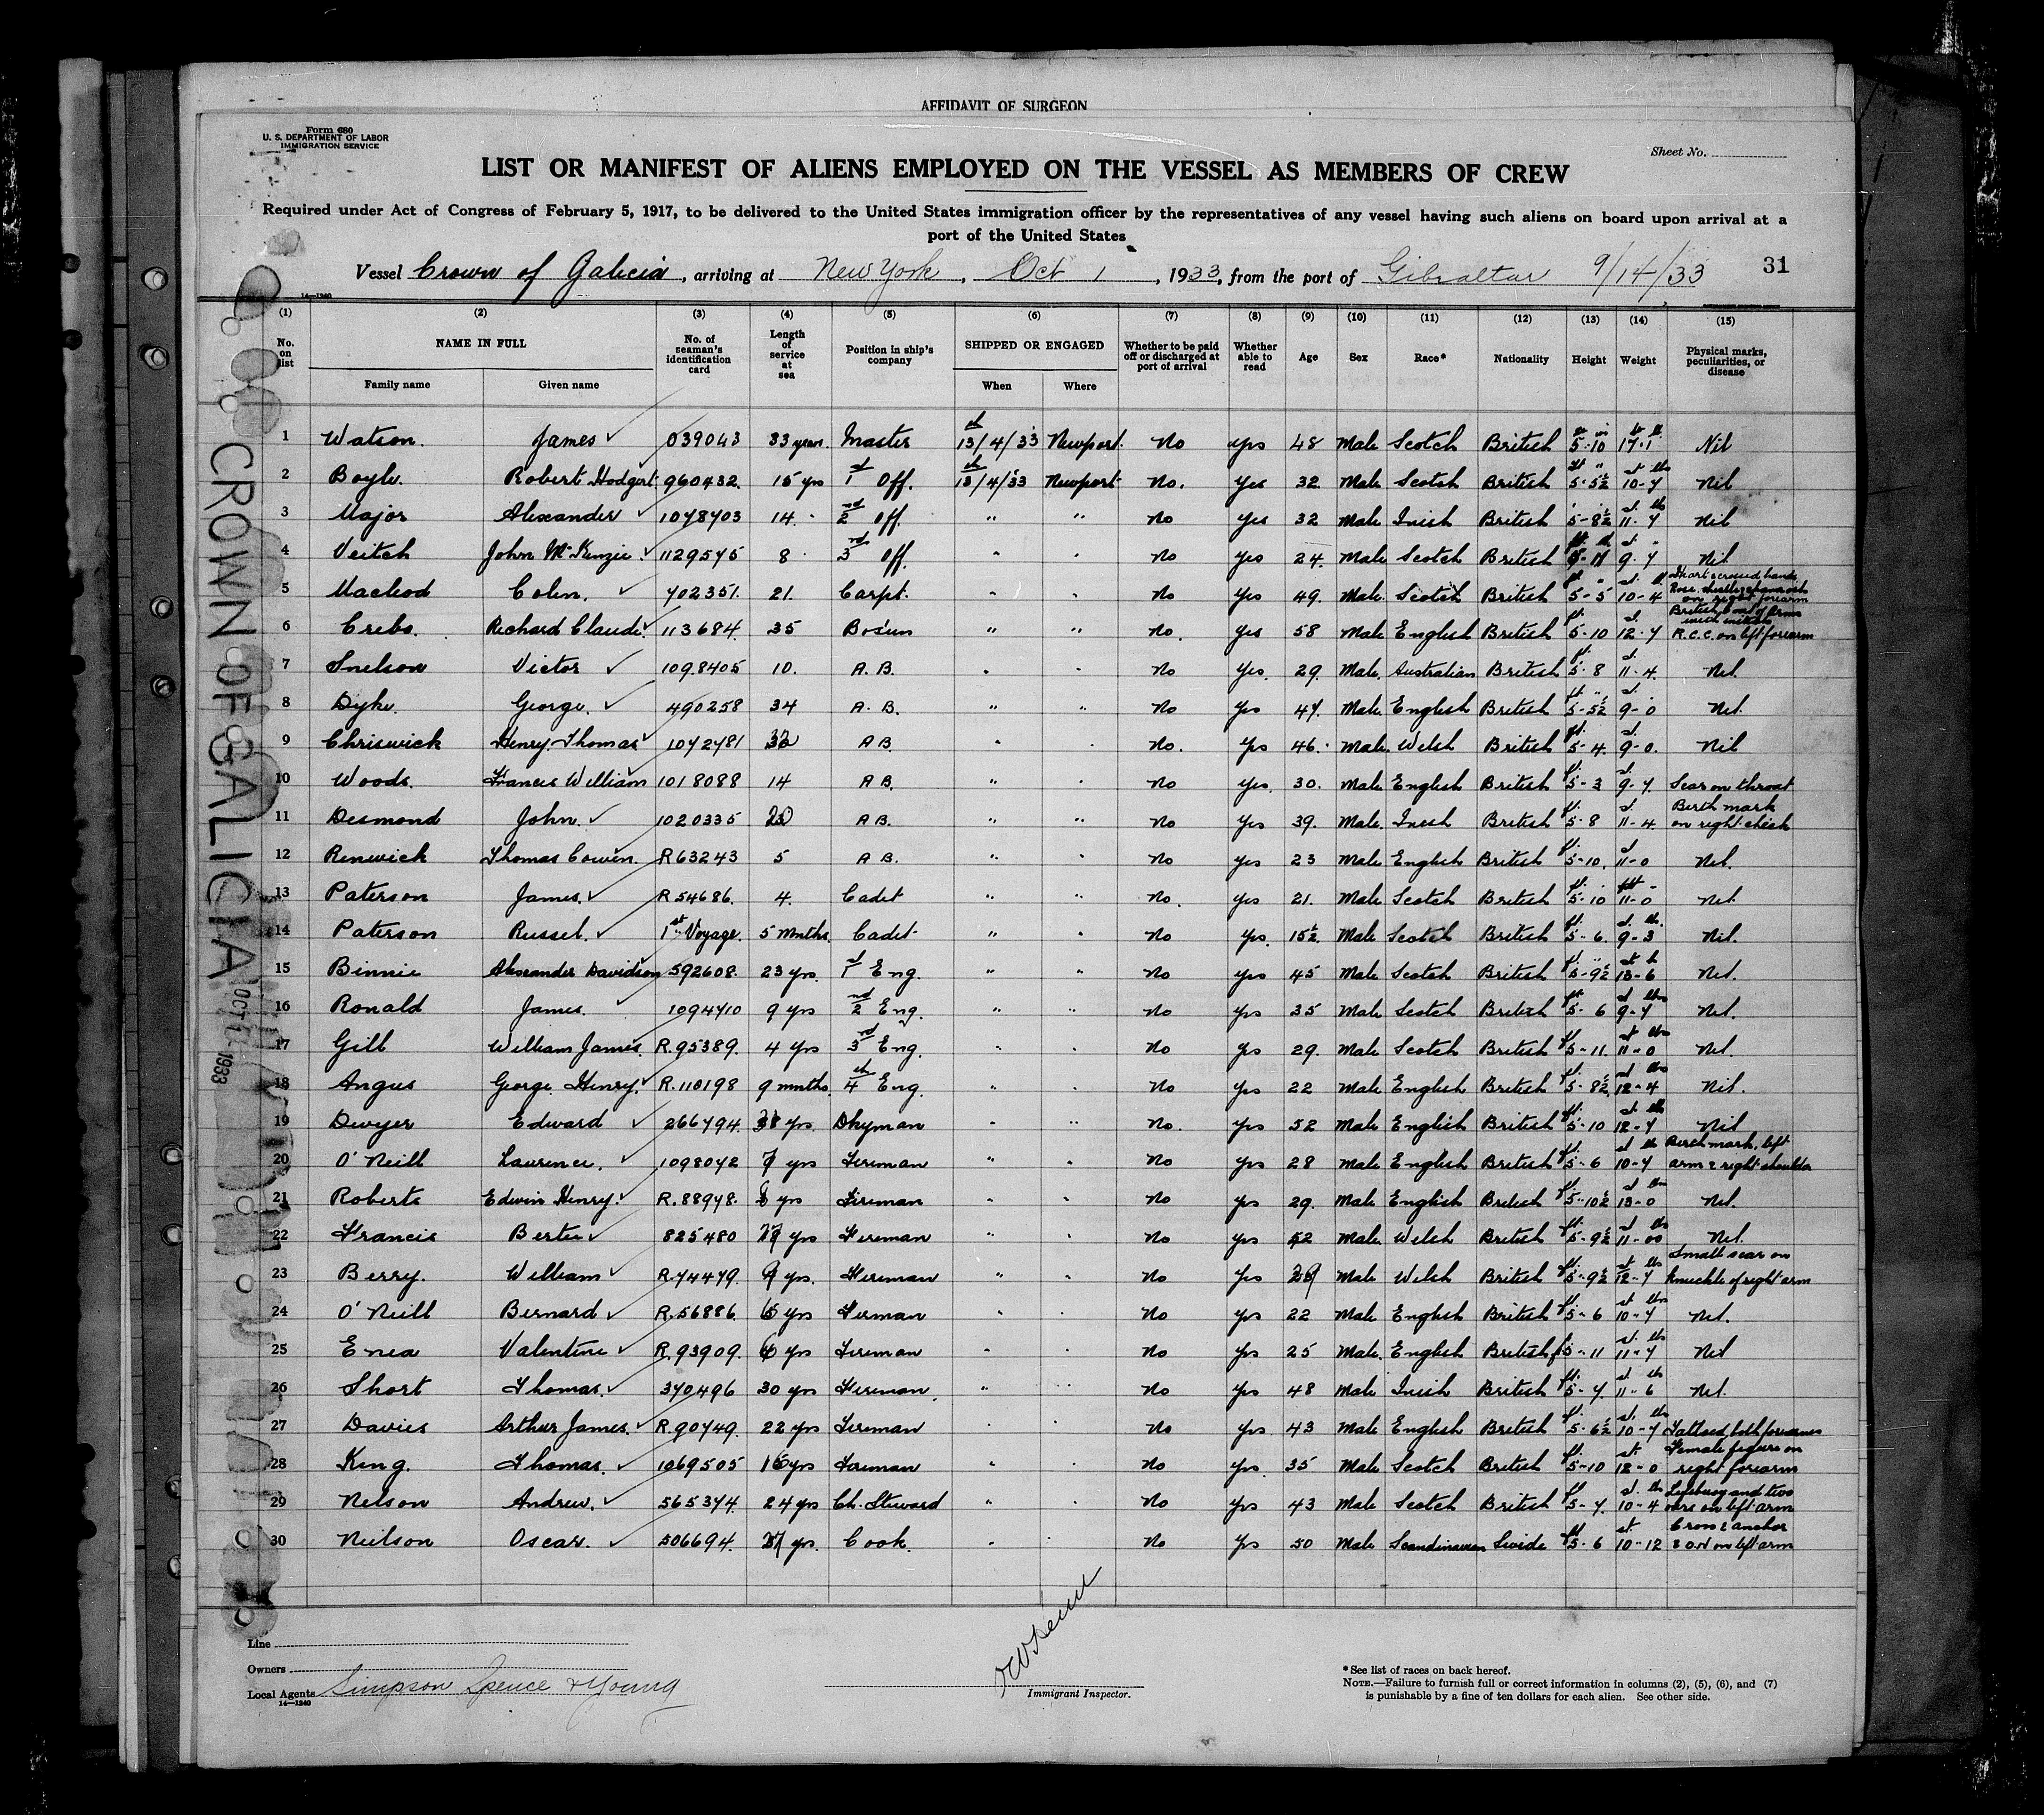 AFFIDAVIT OF SURGEON
Form 680
U. S. DEPARTMENT OF LABOR
IMMIGRATION SERVICE
Sheet No.
LIST OR MANIFEST OF ALIENS EMPLOYED ON THE VESSEL AS MEMBERS OF CREW
Required under Act of Congress of February 5, 1917, to be delivered to the United States immigration officer by the representatives of any vessel having such aliens on board upon arrival at a
port of the United States
Vessel Crown of Galicia, arriving at New York, Oct 1, 1933, from the port of Gibraltar 9/14/33 31
14—1240
(1) (2) (3) (4) (5) (6) (7) (8) (9) (10) (11) (12) (13) (14) (15)
No. on list NAME IN FULL Family name Given name No. of seaman's identification card Length of service at sea Position in ship's company SHIPPED OR ENGAGED When Where Whether to be paid off or discharged at port of arrival Whether able to read Age Sex Race* Nationality Height Weight Physical marks, peculiarities, or disease
1 Watson. James 039043 33 years. Master 13th/4/33 Newport. No yes 48 Male Scotch British 5-10 17-1 Nil
2 Boyle. Robert Hodgert 960432. 15 yrs 1st Off. 13th/4/33 Newport No. Yes 32 Male Scotch British 5-5½ 10-7 Nil
3 Major Alexander 1078703 14 2nd Off. " " No Yes 32 Male Irish British 5-8½ 11-7 Nil
4 Veitch John McKenzie 1129575 8 3rd Off. " " No Yes 24 Male Scotch British 9-7 Nil
5 Macleod Colin. 702351. 21. Carpt. " " No Yes 49. Male Scotch British 5-5 10-4 Heart & crossed hands Rose thistle & shamrock on right forearm
6 Crebo. Richard Claude. 113684. 35 Bosun " " No. Yes 58 Male English British 5-10 12-7 British Coat of Arms with initials R.C.C. on left forearm
7 Snelson Victor 1098405 10. A.B. " " No Yes. 29. Male. Australian British 5-8 11-4. Nil.
8 Dyke. George. 490258 34 A.B. " " No Yes 47. Male. English British 5-5½ 9-0 Nil.
9 Chriswick Henry Thomas 1072781 A B. " " No. Yes 46. Male. Welsh British 5-4. 9-0. Nil
10 Woods. Francis William 1018088 14 A B. " " No Yes. 30. Male English British 5-3 9-7 Scar on throat
11 Desmond John. 1020335 A B. " " No Yes 39. Male. Irish British 5-8 11-4. Birth mark on right cheek
12 Renwick Thomas Cowen. R63243 5 A B. " " No Yes 23 Male English British 5-10. 11-0 Nil.
13 Paterson James. R54686. 4. Cadet " " No. Yes 21. Male Scotch British 5-10 11-0 Nil.
14 Paterson Russel. 1st Voyage. 5 mnths. Cadet " " No Yes. 15½ Male Scotch British 5-6. 9-3 Nil.
15 Binnie Alexander Davidson 592608. 23 yrs. 1st Eng. " " No Yes 45 Male Scotch British 5-9½ 13-6 Nil.
16 Ronald James. 1094710 9 yrs 2nd Eng. " " No Yes 35 Male Scotch British 5-6 9-7 Nil.
17 Gill William James. R.95389. 4 yrs 3rd Eng. " " No Yes 29. Male Scotch British 5-11. 11-0 Nil.
18 Angus George Henry. R.110198 9 mnths. 4th Eng. " " No Yes 22 Male English British 5-8½ 12-4 Nil.
19 Dwyer Edward 266794. yrs. Dkyman " " No. Yes 52 Male English British 5-10 12-7 Nil
20 O'Neill Laurence. 1098072 7 yrs Fireman " " No Yes 28 Male English British 5-6 10-7 Birth mark. left arm & right shoulder
21 Roberts Edwin Henry. R.88978. yrs Fireman " " No Yes 29. Male English British 5-10½ 13-0 Nil.
22 Francis Bertie 825480 yrs Fireman " " No Yes 52 Male. Welsh British 5-9½ 11-00 Nil.
23 Berry. William R.74479. 9 yrs. Fireman " " No Yes Male Welsh British 5-9½ 12-7 Small scar on knuckle of right arm
24 O'Neill Bernard R.56886. yrs Fireman " " No Yes 22 Male English British 5-6 10-7 Nil.
25 Enea Valentine R.93909. yrs Fireman " " No Yes 25 Male. English British 5-11 11-7 Nil
26 Short Thomas. 370496 30 yrs Fireman. " " No Yes 48 Male Irish British 5-7. 11-6 Nil.
27 Davies Arthur James. R.90749. 22 yrs Fireman " " No Yes 43 Male English British 5-6½ 10-7 Tattooed both forearms
28 King. Thomas. 1069505 16 yrs Fireman " " No Yes. 35 Male Scotch British 5-10 12-0 Female figure on right forearm
29 Nelson Andrew. 565374. 24 yrs Ch. Steward " " No Yes 43 Male Scotch British 5-7. 10-4 Lifebuoy and two oars on left arm
30 Neilson Oscar. 506694. yrs. Cook. " " No Yes 50 Male Scandinavian Swede 5-6 10-12 Cross & anchor & O.N on left arm
CROWN OF GALICIA
OCT 1 - 1933
Line
Owners
Local Agents Simpson Spence & Young
14—1240
Immigrant Inspector.
* See list of races on back hereof.
NOTE.—Failure to furnish full or correct information in columns (2), (5), (6), and (7)
is punishable by a fine of ten dollars for each alien. See other side.